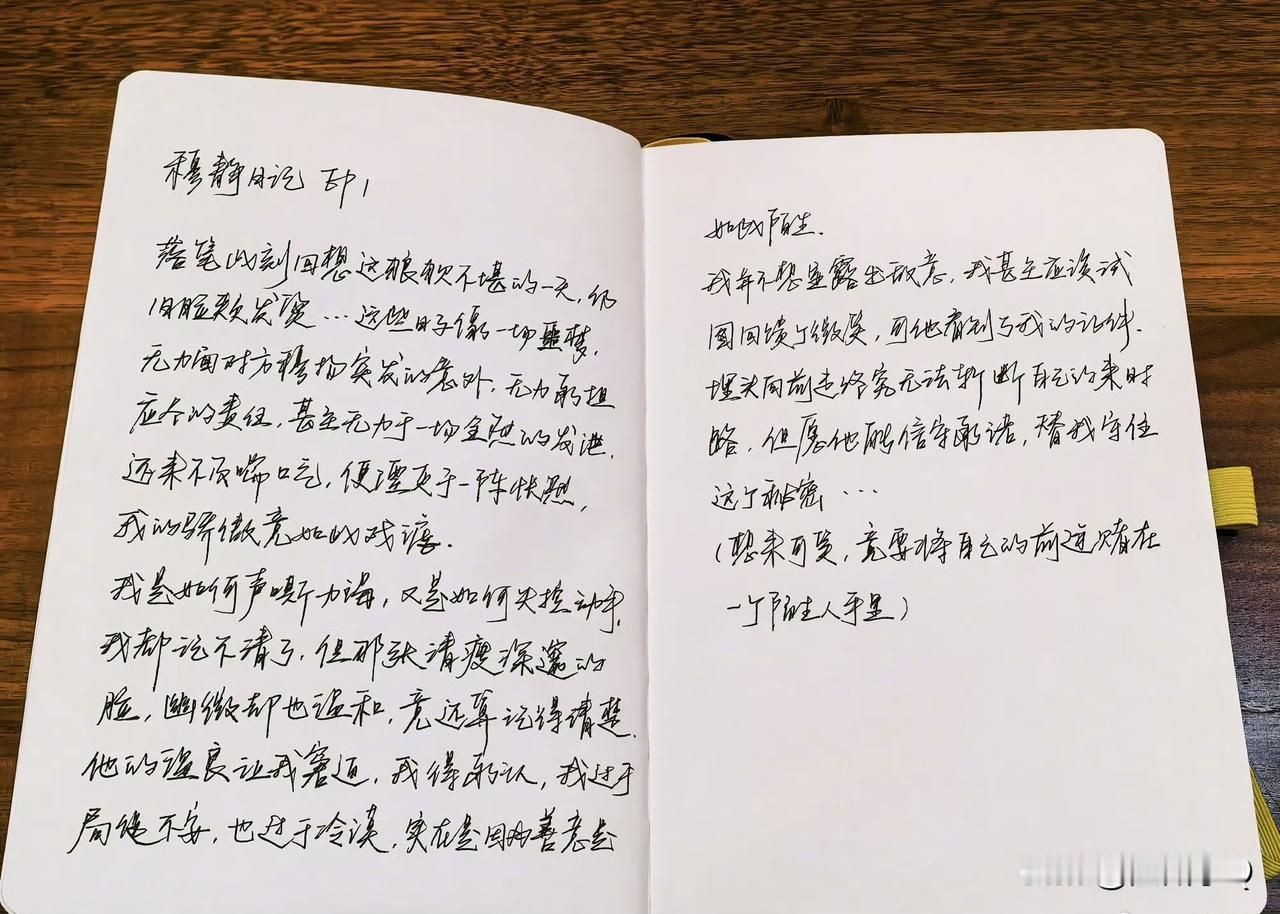 穆静日记 EP1
落笔此刻回想这狼狈不堪的一天,仍
旧脸颊发烫…这些日子像一场噩梦,
无力面对方穆扬突发的意外,无力承担
应尽的责任,甚至无力于一场全烈的发泄,
还来不及喘口气,便湮灭于一阵怅然,
我的骄傲竟如此戏谑.
我是如何声嘶力竭,又是如何失控动手,
我都记不清了,但那张清瘦深邃的
脸,幽微却也温和,竟还算记得清楚.
他的温良让我窘迫,我得承认,我过于
局促不安,也过于冷漠,实在是因为善意是
如此陌生.
我并不想显露出敌意,我甚至应该试
图回馈个微笑,可他看到了我的证件.
埋头向前走终究无法斩断自己的来时
路,但愿他能信守承诺,替我守住
这个秘密…
(想来可笑,竟要将自己的前途赌在
一个陌生人手里)